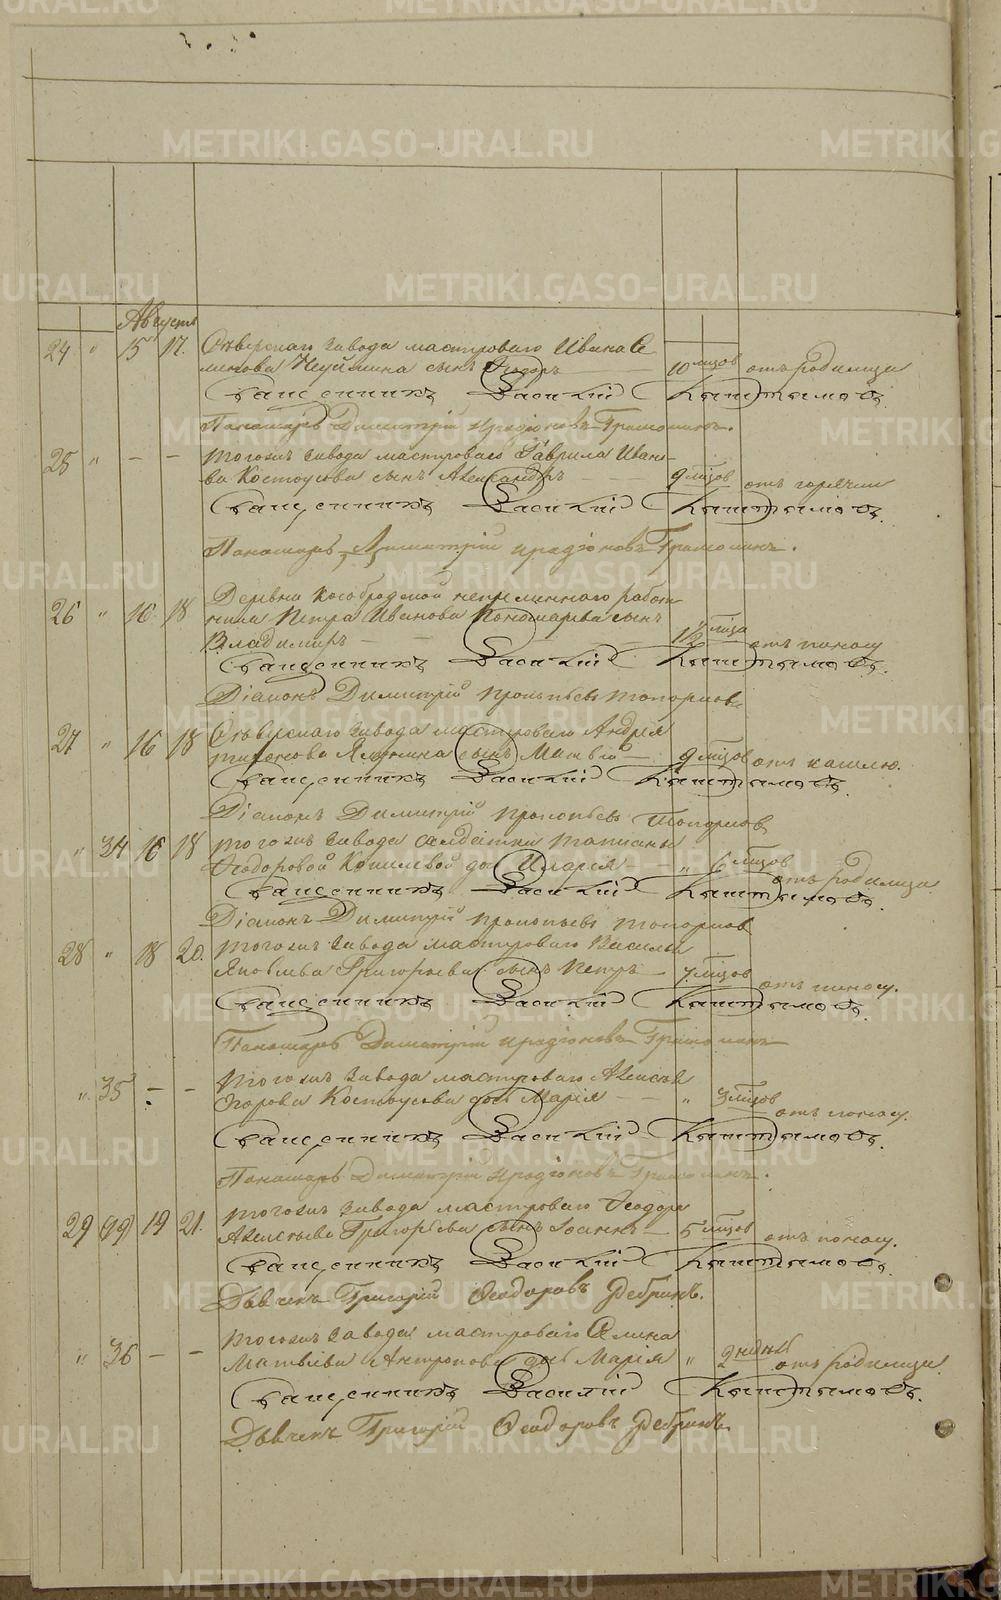 Августъ
24 " 15 17. Сѣверскаго завода мастероваго Ивана Се
менова сынъ Ѳеодоръ 10 мѣцов отъ родимца
Священникъ Василій Кыштымовъ.
Пономарь Димитрій Иродіоновъ Грамолинъ.
25 " — — Тогожъ завода мастероваго Гаврила Ивано
ва Костоусова сынъ Александръ 9 мѣцов отъ горячки
Священникъ Василій Кыштымовъ.
Пономарь Димитрій Иродіоновъ Грамолинъ.
26 " 16 18 Деревни Кособродской непременнаго работ
ника Петра Иванова Пономарева сынъ
Владимиръ 1½ мѣца отъ поносу
Священникъ Василій Кыштымовъ.
Діаконъ Димитрій Прокопьевъ Топорковъ
27 " 16 18 Сѣверскаго завода мастероваго Андрея
сынъ Матвѣй — 9 мѣцов отъ кашлю.
Священникъ Василій Кыштымовъ.
Діаконъ Димитрій Прокопьевъ Топорковъ
" 34 16 18 Тогожъ завода солдатки Татьяны
Ѳеодоровой дочь Марія " 6 мѣцов отъ родимца
Священникъ Василій Кыштымовъ.
Діаконъ Димитрій Прокопьевъ Топорковъ
28 " 18 20. Тогожъ завода мастероваго Василья
Яковлева Григорьева сынъ Петръ — 7 мѣцов отъ поносу.
Священникъ Василій Кыштымовъ.
Пономарь Димитрій Иродіоновъ Грамолинъ
" 35 — — Тогожъ завода мастероваго Алексѣя
Егорова Костоусова дочь Марія — — " 3 мѣцов отъ поносу.
Священникъ Василій Кыштымовъ.
Пономарь Димитрій Иродіоновъ Грамолинъ.
29 19 21. Тогожъ завода мастероваго Ѳеодора
Алексѣева Григорьева сынъ Іоаннъ — 5 мѣцов отъ поносу.
Священникъ Василій Кыштымовъ.
Дьячекъ Григорій Ѳеодоровъ Ребринъ.
" 36 — — Тогожъ завода мастероваго
Матвѣева Антропова дочь Марія " 2 недѣль отъ родимца
Священникъ Василій Кыштымовъ.
Дьячекъ Григорій Ѳеодоровъ Ребринъ.
METRIKI.GASO-URAL.RU